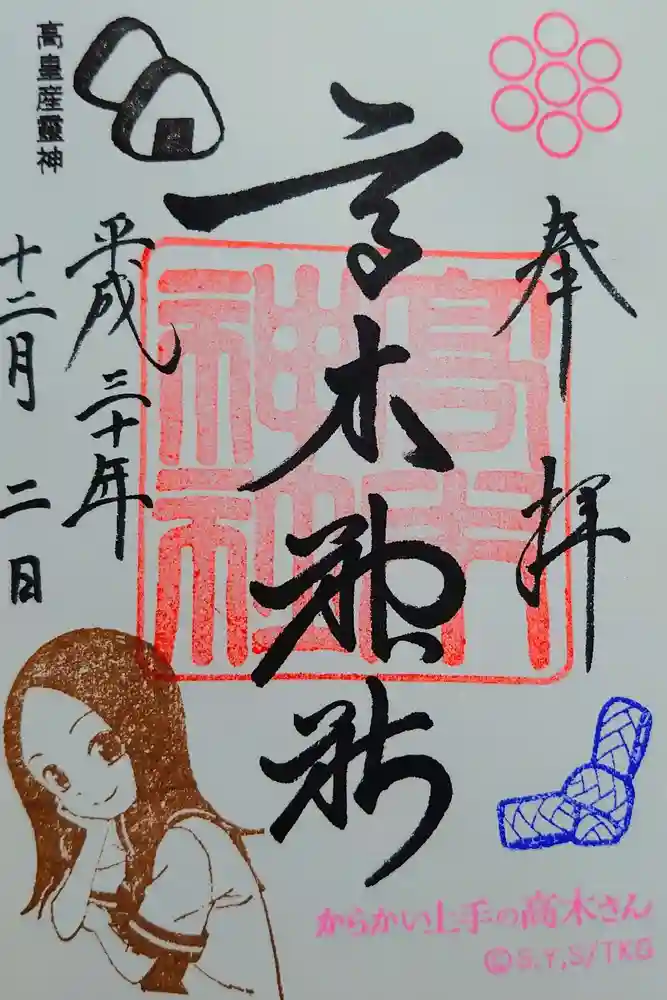 奉拝
高木神社
高木
神社
高皇産靈神
平成三十年
十二月二日
からかい上手の高木さん
©S.Y,S/TKG